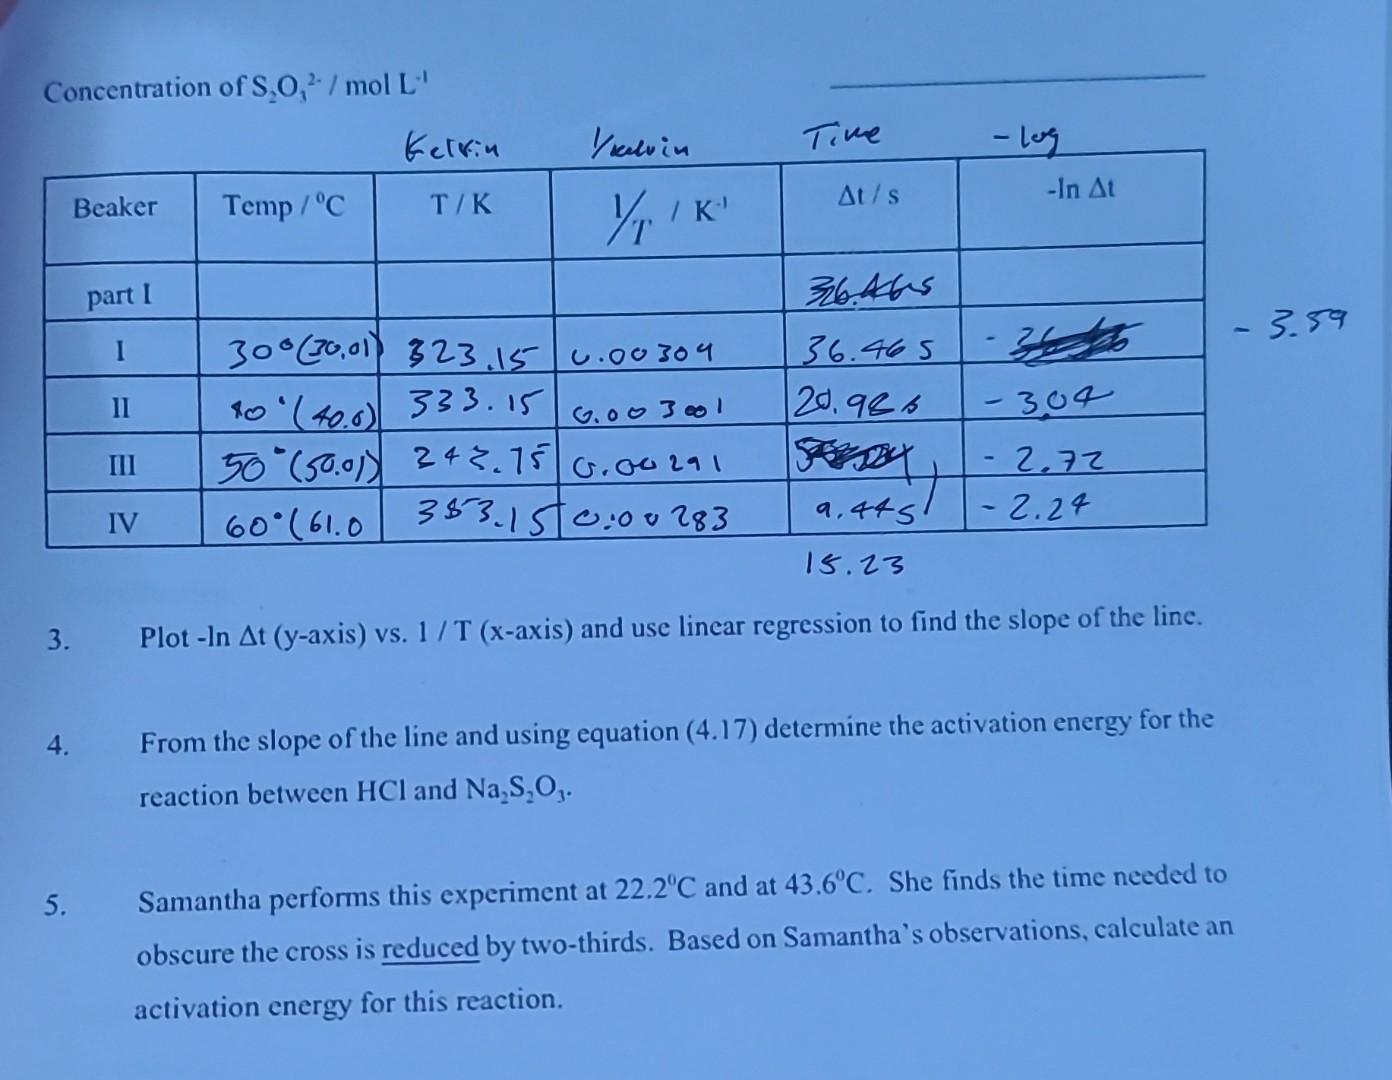 Concentration of S₂O₃²⁻ / mol L⁻¹
Kelvin 1/kelvin Time - log
Beaker Temp / ⁰C T / K 1/T / K⁻¹ Δt / s -ln Δt
part I
I 30° (30.01) 323.15 0.00309 36.46 s - 3.59
II 40° (40.0) 333.15 0.003001 20.98 s - 3.04
III 50° (50.01) 0.00291 - 2.72
IV 60° (61.0 353.15 0.00283 9.44s - 2.24
15.23
3. Plot -ln Δt (y-axis) vs. 1 / T (x-axis) and use linear regression to find the slope of the line.
4. From the slope of the line and using equation (4.17) determine the activation energy for the
reaction between HCl and Na₂S₂O₃.
5. Samantha performs this experiment at 22.2⁰C and at 43.6⁰C. She finds the time needed to
obscure the cross is reduced by two-thirds. Based on Samantha's observations, calculate an
activation energy for this reaction.